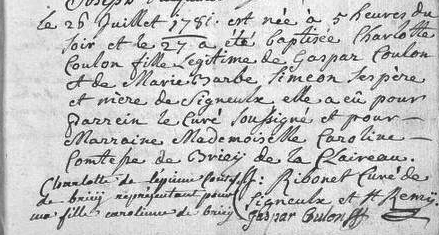 le 26 Juillet 1781. est née à 5 heures du
soir et le 27 a été baptisée Charlotte
Coulon fille legitime de Gaspar Coulon
et de Marie Barbe Simeon ses père
et mère de Signeulx elle a eû pour
Parrein le Curé soussigné et pour
Marraine Mademoiselle Caroline
Comtesse de Briey de la Claireau.
Charlotte de
de briey représentant pour
ma fille caroline de briey
J. Ribonet Curé de
Signeulx et St Remy
Gaspar Coulon